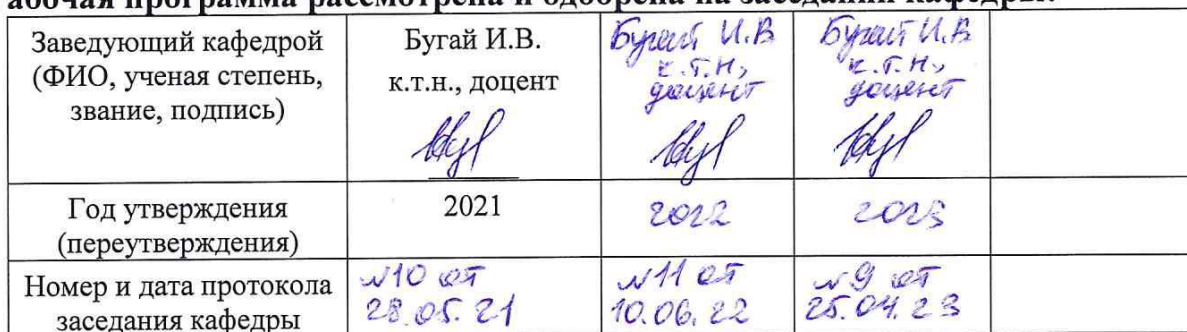 абочая программа рассмотрена и одобрена на заседании кафедры:
Заведующий кафедрой
(ФИО, ученая степень,
звание, подпись)
Бугай И.В.
к.т.н., доцент
Бугай И.В
к.т.н,
доцент
Бугай И.В
к.т.н,
доцент
Год утверждения
(переутверждения)
2021
2022
2023
Номер и дата протокола
заседания кафедры
№10 от
28.05.21
№11 от
10.06.22
№9 от
25.04.23